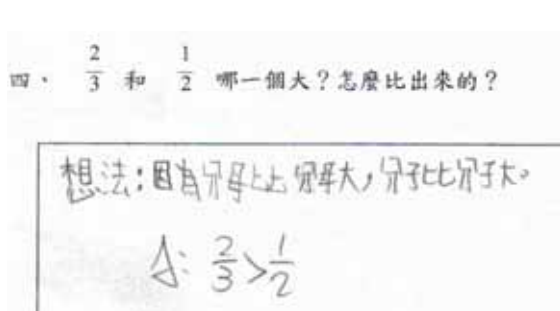 四、 2/3 和 1/2 哪一個大?怎麼比出來的?
想法:因為分母比分母大,分子比分子大。
A: 2/3 > 1/2